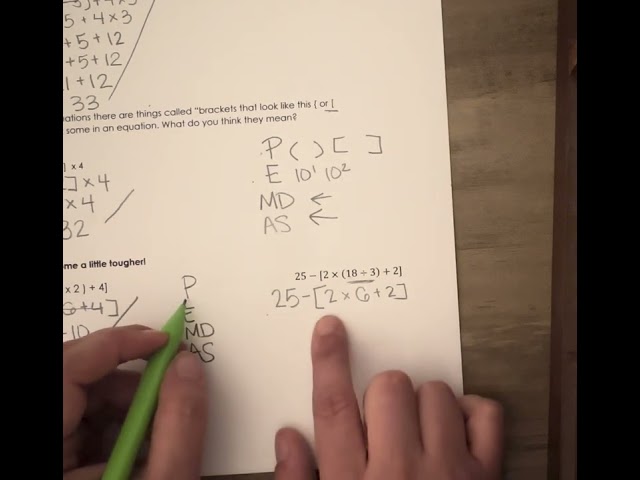 5 + 4 × 3
+ 5 + 12
+ 5 + 12
1 + 12
33
ations there are things called "brackets that look like this { or [
some in an equation. What do you think they mean?
P ( ) [ ]
E 10¹ 10²
MD ←
AS ←
] x 4
] × 4
× 4
32
me a little tougher!
x 2 ) + 4]
+ 4]
10
P
E
MD
AS
25 – [2 × (18 ÷ 3) + 2]
25 - [2 × 6 + 2]